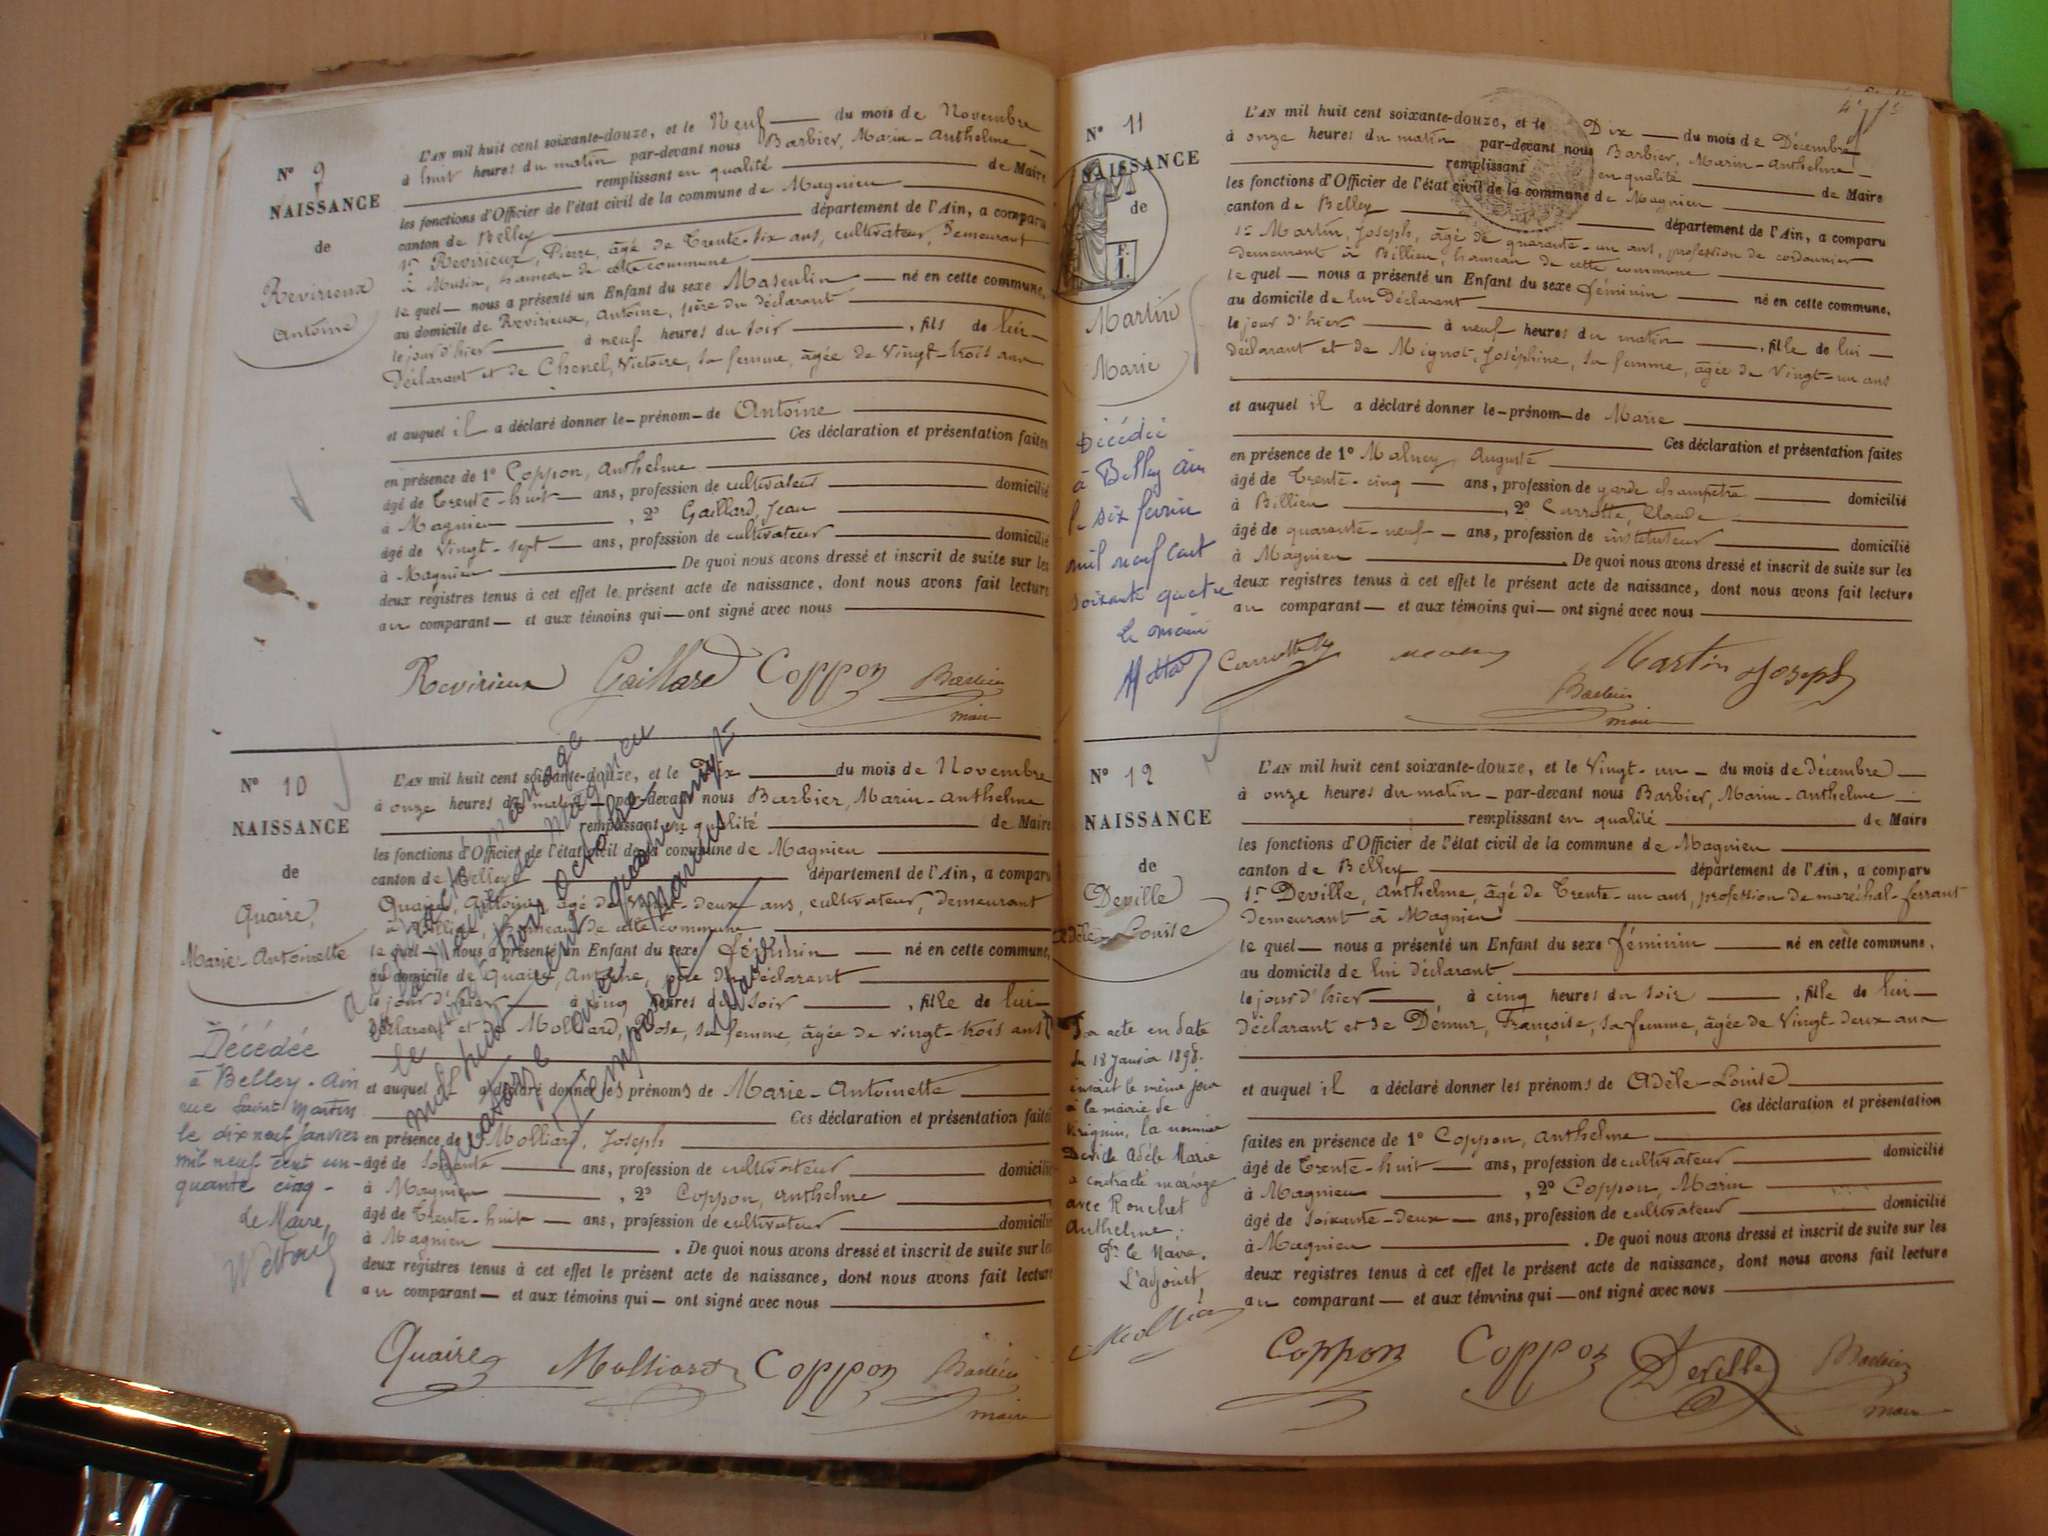 N° 9
NAISSANCE
de
Revirieux
Antoine
L'AN mil huit cent soixante-douze, et le Neuf du mois de Novembre
à huit heures du matin par-devant nous Barbier, Marin-Anthelme
remplissant en qualité de Maire
les fonctions d'Officier de l'état civil de la commune de Magnieu
canton de Belley département de l'Ain, a comparu
1° Revirieux, Pierre, âgé de Trente-six ans, cultivateur, demeurant
à Musin, hameau de cette commune
le quel nous a présenté un Enfant du sexe Masculin né en cette commune,
au domicile de Revirieux, Antoine, père du déclarant
le jour d'hier à neuf heures du soir, fils de lui
déclarant et de Chenel, Victoire, sa femme, âgée de Vingt-trois ans
et auquel il a déclaré donner le prénom de Antoine
Ces déclaration et présentation faites
en présence de 1° Coppon, Anthelme
âgé de Trente-huit ans, profession de cultivateur domicilié
à Magnieu, 2° Gaillard, Jean
âgé de Vingt-sept ans, profession de cultivateur domicilié
à Magnieu De quoi nous avons dressé et inscrit de suite sur les
deux registres tenus à cet effet le présent acte de naissance, dont nous avons fait lecture
au comparant et aux témoins qui ont signé avec nous
Revirieux Gaillard Coppon Barbier
maire
N° 10
NAISSANCE
de
Quaire,
Marie-Antoinette
Décédée
à Belley-Ain
rue Saint Martin
le dix neuf janvier
mil neuf cent cin-
quante cinq -
Le Maire,
L'AN mil huit cent soixante-douze, et le Dix du mois de Novembre
à onze heures du matin par-devant nous Barbier, Marin-Anthelme
remplissant en qualité de Maire
les fonctions d'Officier de l'état civil de la commune de Magnieu
canton de Belley département de l'Ain, a comparu
Quaire, Antoine, âgé de Vingt-deux ans, cultivateur, demeurant
à Billieu, hameau de cette commune
le quel nous a présenté un Enfant du sexe féminin né en cette commune,
au domicile de Quaire, Antoine, père du déclarant
le jour d'hier à cinq heures du soir, fille de lui
déclarant et de Molliard, Rose, sa femme, âgée de vingt-trois ans
et auquel il a déclaré donner les prénoms de Marie-Antoinette
Ces déclaration et présentation faites
en présence de Molliard, Joseph
âgé de soixante ans, profession de cultivateur domicilié
à Magnieu, 2° Coppon, Anthelme
âgé de Trente-huit ans, profession de cultivateur domicilié
à Magnieu. De quoi nous avons dressé et inscrit de suite sur les
deux registres tenus à cet effet le présent acte de naissance, dont nous avons fait lecture
au comparant et aux témoins qui ont signé avec nous
Quaire Molliard Coppon Barbier
maire
a contracté mariage
à la mairie de Magnieu
le vingt trois Octobre
mil huit cent quatre vingt
quatorze avec
N° 11
NAISSANCE
de
F.
I.
Martin
Marie
Décédée
à Belley Ain
le six février
mil neuf cent
soixante quatre
le maire
L'AN mil huit cent soixante-douze, et le Dix du mois de Décembre
à onze heures du matin par-devant nous Barbier, Marin-Anthelme
remplissant en qualité de Maire
les fonctions d'Officier de l'état civil de la commune de Magnieu
canton de Belley département de l'Ain, a comparu
1° Martin, Joseph, âgé de quarante-un ans, profession de cordonnier
demeurant à Billieu, hameau de cette commune
le quel nous a présenté un Enfant du sexe féminin né en cette commune,
au domicile de lui Déclarant
le jour d'hier à neuf heures du matin, fille de lui
déclarant et de Mignot, Joséphine, sa femme, âgée de Vingt-un ans
et auquel il a déclaré donner le prénom de Marie
Ces déclaration et présentation faites
en présence de 1° Auguste
âgé de Trente-cinq ans, profession de garde champêtre domicilié
à Billieu, 2° Currotte, Claude
âgé de quarante-neuf ans, profession de instituteur domicilié
à Magnieu. De quoi nous avons dressé et inscrit de suite sur les
deux registres tenus à cet effet le présent acte de naissance, dont nous avons fait lecture
au comparant et aux témoins qui ont signé avec nous
Martin Joseph
Barbier
maire
N° 12
NAISSANCE
de
Deville
Adèle-Louise
Par acte en date
du 18 Janvier 1898.
inscrit le même jour
à la mairie de
Virignin, la nommée
Deville Adèle Marie
a contracté mariage
avec Ronchet
Anthelme.
Pr. le Maire.
L'adjoint,
L'AN mil huit cent soixante-douze, et le Vingt-un du mois de Décembre
à onze heures du matin par-devant nous Barbier, Marin-Anthelme
remplissant en qualité de Maire
les fonctions d'Officier de l'état civil de la commune de Magnieu
canton de Belley département de l'Ain, a comparu
1° Deville, Anthelme, âgé de Trente-un ans, profession de maréchal-ferrant
demeurant à Magnieu
le quel nous a présenté un Enfant du sexe féminin né en cette commune,
au domicile de lui déclarant
le jour d'hier, à cinq heures du soir, fille de lui
déclarant et de Démur, Françoise, sa femme, âgée de Vingt-deux ans
et auquel il a déclaré donner les prénoms de Adèle-Louise
Ces déclaration et présentation
faites en présence de 1° Coppon, Anthelme
âgé de Trente-huit ans, profession de cultivateur domicilié
à Magnieu, 2° Coppon, Marin
âgé de soixante-deux ans, profession de cultivateur domicilié
à Magnieu. De quoi nous avons dressé et inscrit de suite sur les
deux registres tenus à cet effet le présent acte de naissance, dont nous avons fait lecture
au comparant et aux témoins qui ont signé avec nous
Coppon Coppon Deville Barbier
maire